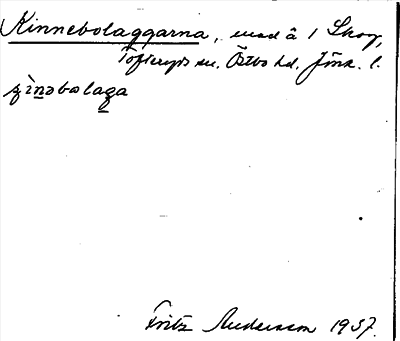 Kinnebolaggarna, mad å 1 Skog,
Tofteryds sn. Östbo hd. Jönk. l.
ʂìnəbolaga
Fritz Andersson 1937.